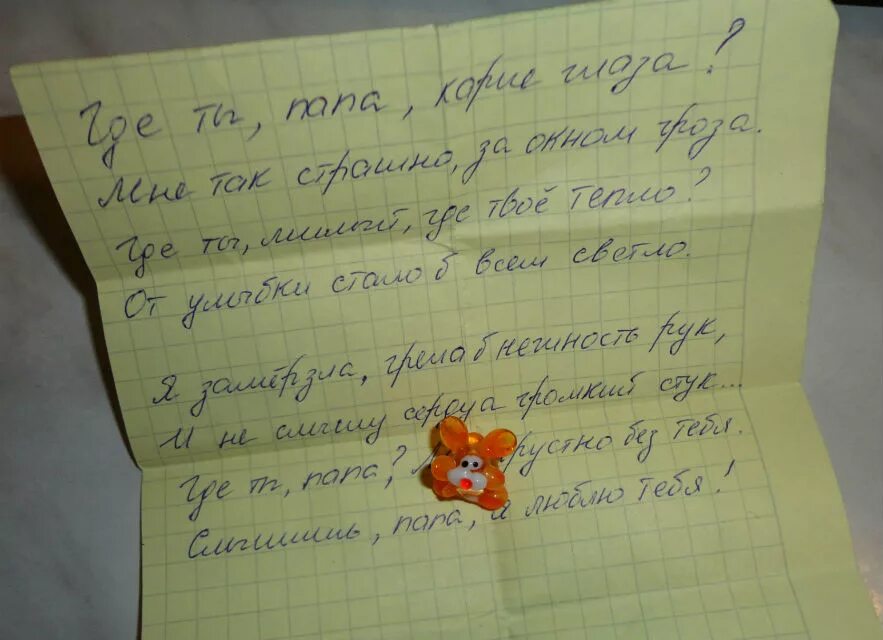 Где ты, папа, карие глаза?
Мне так страшно, за окном гроза.
Где ты, милый, где твоё тепло?
От улыбки стало б всем светло.
Я замёрзла, грела б нежность рук,
И не слышу сердца громкий стук...
Где ты, папа? грустно без тебя.
Слышишь, папа, я люблю тебя!